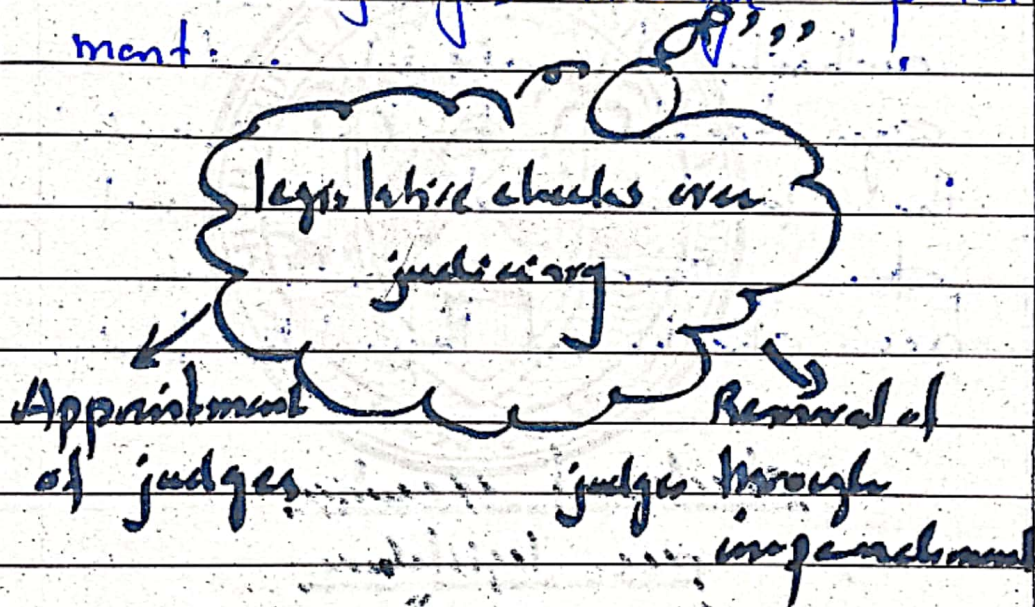 ment.
legislative checks over
judiciary
Appointment
of judges
Removal of
judges through
impeachment